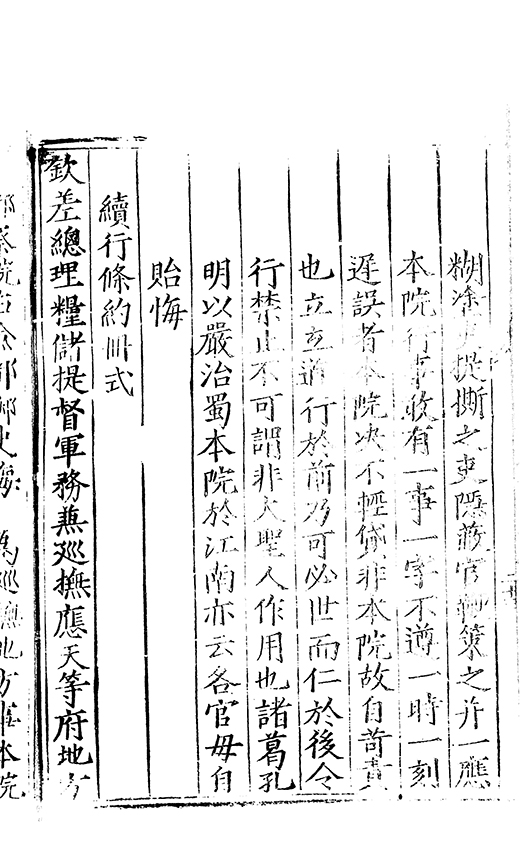 糊塗提撕之吏隱蔽官鞭策之并一應
本院行事敢有一事一字不遵一時一刻
遲誤者本院决不輕貸非本院故自苛責
也立立道行於前乃可必世而仁於後令
行禁止不可謂非大聖人作用也諸葛孔
明以嚴治蜀本院於江南亦云各官毋自
貽悔
續行條約冊式
欽差總理糧儲提督軍務兼巡撫應天等府地方
都察院右僉都御史海 為巡撫地方事本院